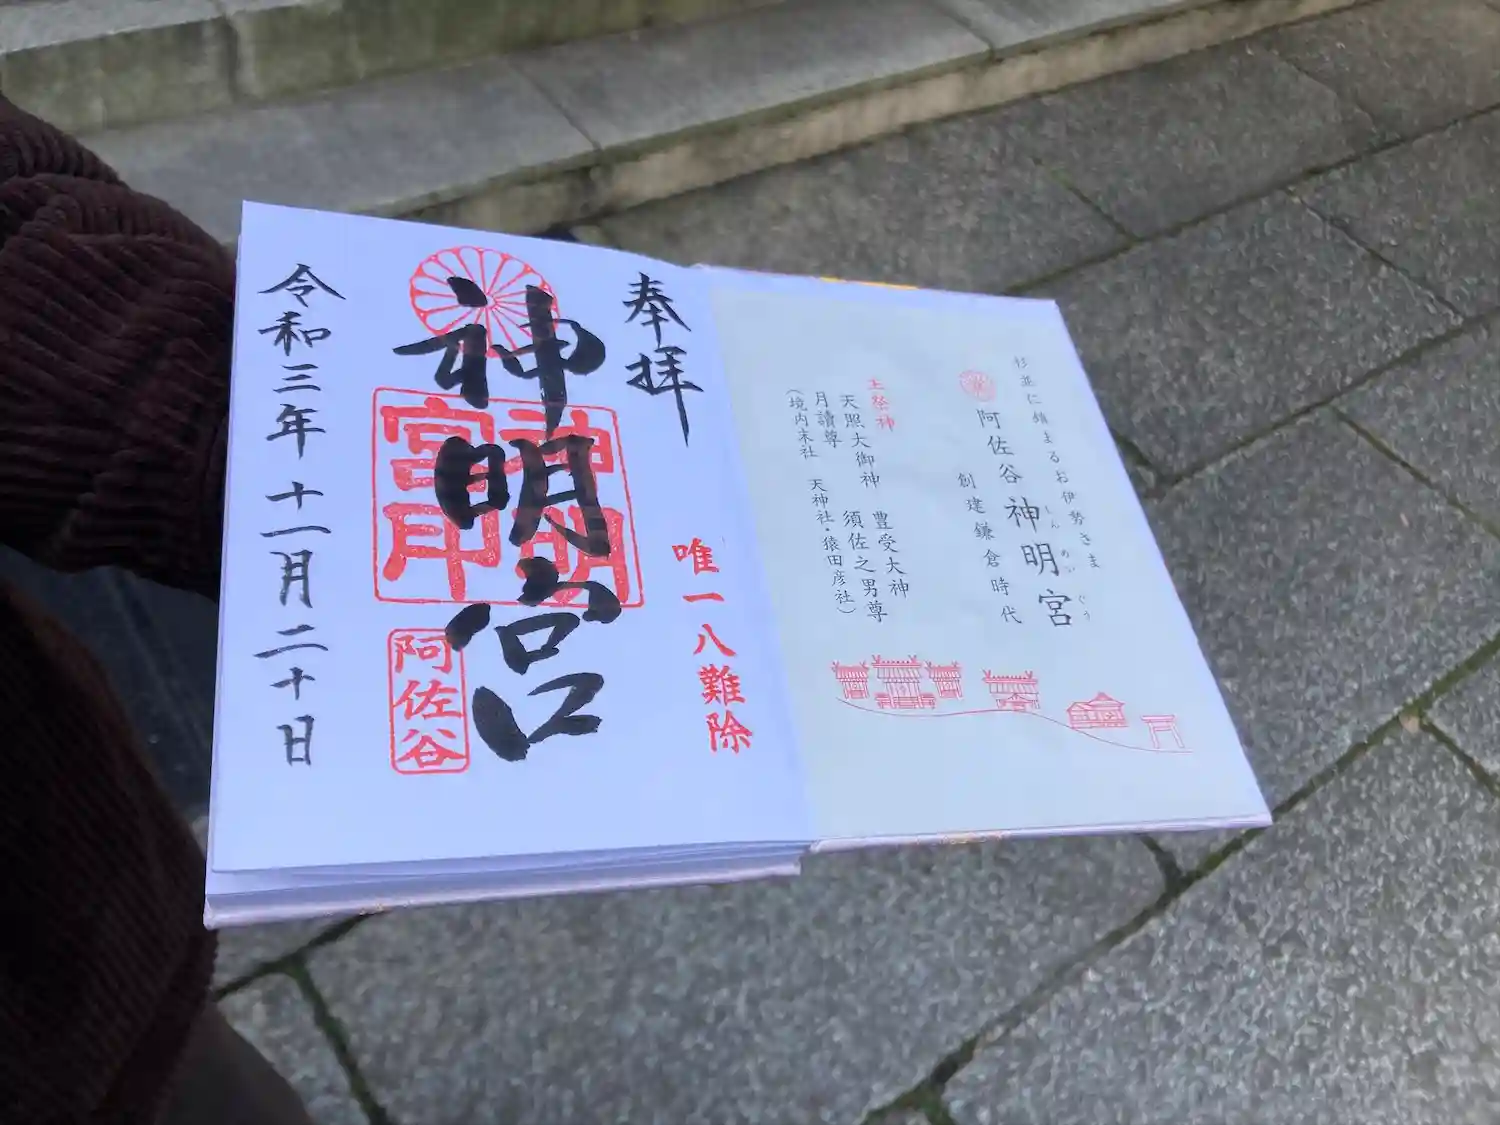 杉並に鎮まるお伊勢さま
阿佐谷神明宮
しんめいぐう
創建鎌倉時代
主祭神
天照大御神 豊受大神
月讀尊 須佐之男尊
(境内末社 天神社・猿田彦社)
奉拝
唯一八難除
神明宮
神明宮印
阿佐谷
令和三年十一月二十日